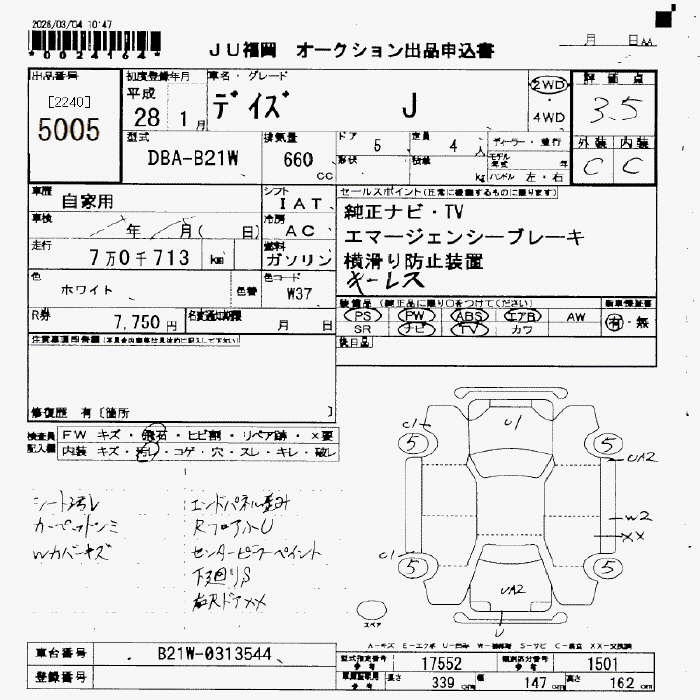 2026/03/04 10:47
*00241644*
JU福岡 オークション出品申込書
月 日
出品番号
[2240]
5005
初度登録年月
平成
28 1月
車名・グレード
デイズ J
2WD
4WD
評価点
3.5
外装 内装
C C
型式
DBA-B21W
排気量
660 cc
ドア 5
形状
定員 4人
積載 kg
ディーラー・並行
モデル年式 年
ハンドル 左・右
車歴 自家用
車検 年 月( 日)
走行 7万0千713 km
色 ホワイト 色替
シフト IAT
冷房 AC
燃料 ガソリン
色コード W37
R券 7,750円
名変通知期限 月 日
セールスポイント(正常に機能するものに限ります)
純正ナビ・TV
エマージェンシーブレーキ
横滑り防止装置
キーレス
装備品 (純正品に限り○をつけてください)
PS PW ABS エアB AW
SR ナビ TV カワ
新車保証書
有・無
後日品
注意事項
修復歴 有〔箇所 〕
検査員記入欄
FW キズ・飛石・ヒビ割・リペア跡・×要
内装 キズ・汚れ・コゲ・穴・スレ・キレ・破レ
シート汚レ
カーペットシミ
Wカバーキズ
エンドパネル歪み
RフロアハU
センターピラーペイント
下廻りS
UI
C1
5
5
UA2
W2
XX
C1
5
5
UA2
U
スペア
A-キズ E-エクボ U-凹み W-補修跡 S-サビ C-腐食 XX-交換済
車台番号 B21W-0313544
登録番号
型式指定番号 17552
類別区分番号 1501
長さ 339 cm
幅 147 cm
高さ 162 cm